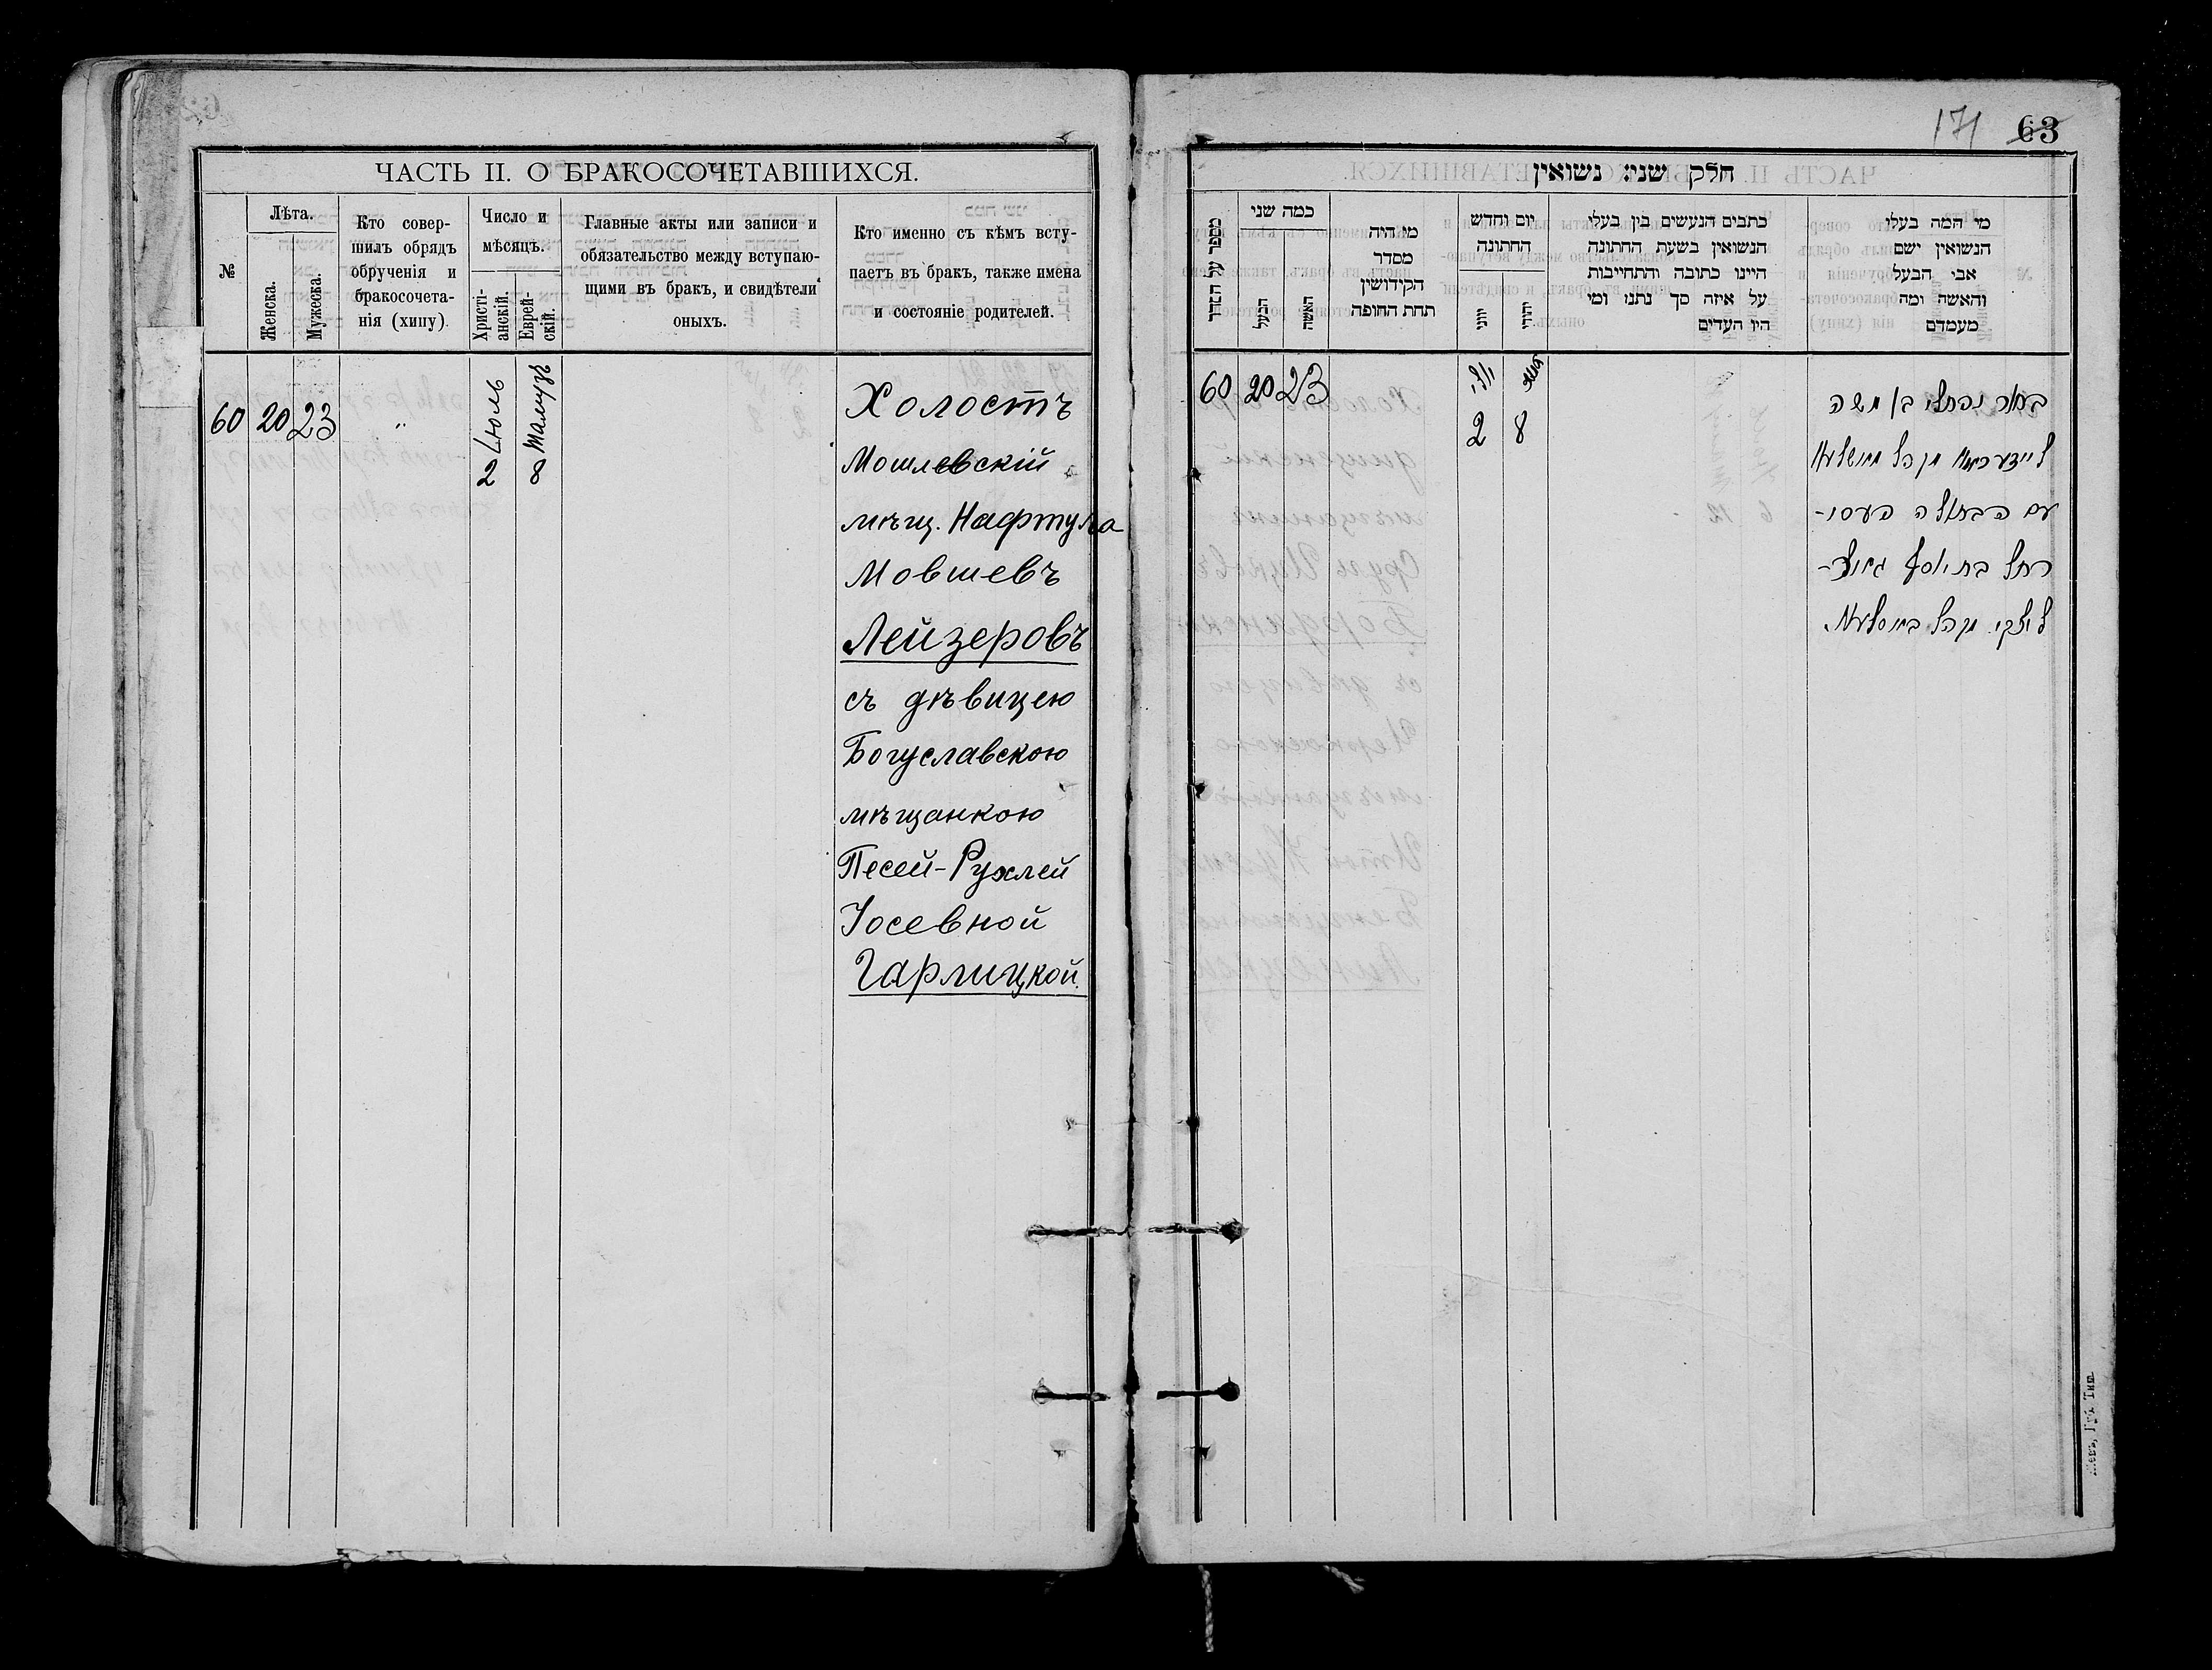 ЧАСТЬ II. О БРАКОСОЧЕТАВШИХСЯ.
№
Лѣта.
Женска.
Мужеска.
Кто совер-
шилъ обрядъ
обрученія и
бракосочета-
нія (хипу)
Число и
мѣсяцъ.
Христі-
анскій.
Еврей-
скій.
Главные акты или записи и
обязательство между вступаю-
щими въ бракъ, и свидѣтели
оныхъ.
Кто именно съ кѣмъ всту-
паетъ въ бракъ, также имена
и состояніе родителей.
60 20 23 „ 2 Іюль 8 Тамузъ
Холостъ
Мошлевскій
мѣщ. Нафтула
Мовшевъ
Лейзеровъ
съ дѣвицею
Богуславскою
мѣщанкою
Песей-Рухлей
Іосевной
Гарлицкой.
171 63
חלק שני: נשואין
מספר על הסדר
כמה שני
הבעל
האשה
מי היה
מסדר
הקידושין
תחת החופה
יום וחדש
החתונה
יווני
יהודי
כתבים הנעשים בין בעלי
הנשואין בשעת החתונה
היינו כתובה והתחייבות
על איזה סך נתנו ומי
היו העדים
מי המה בעלי
הנשואין ישם
אבי הבעל
והאשה ומה
מעמדם
60 20 23
2 8
בחור נפתלי בן משה
עם הבתולה פעסי-
רחל בת יוסף